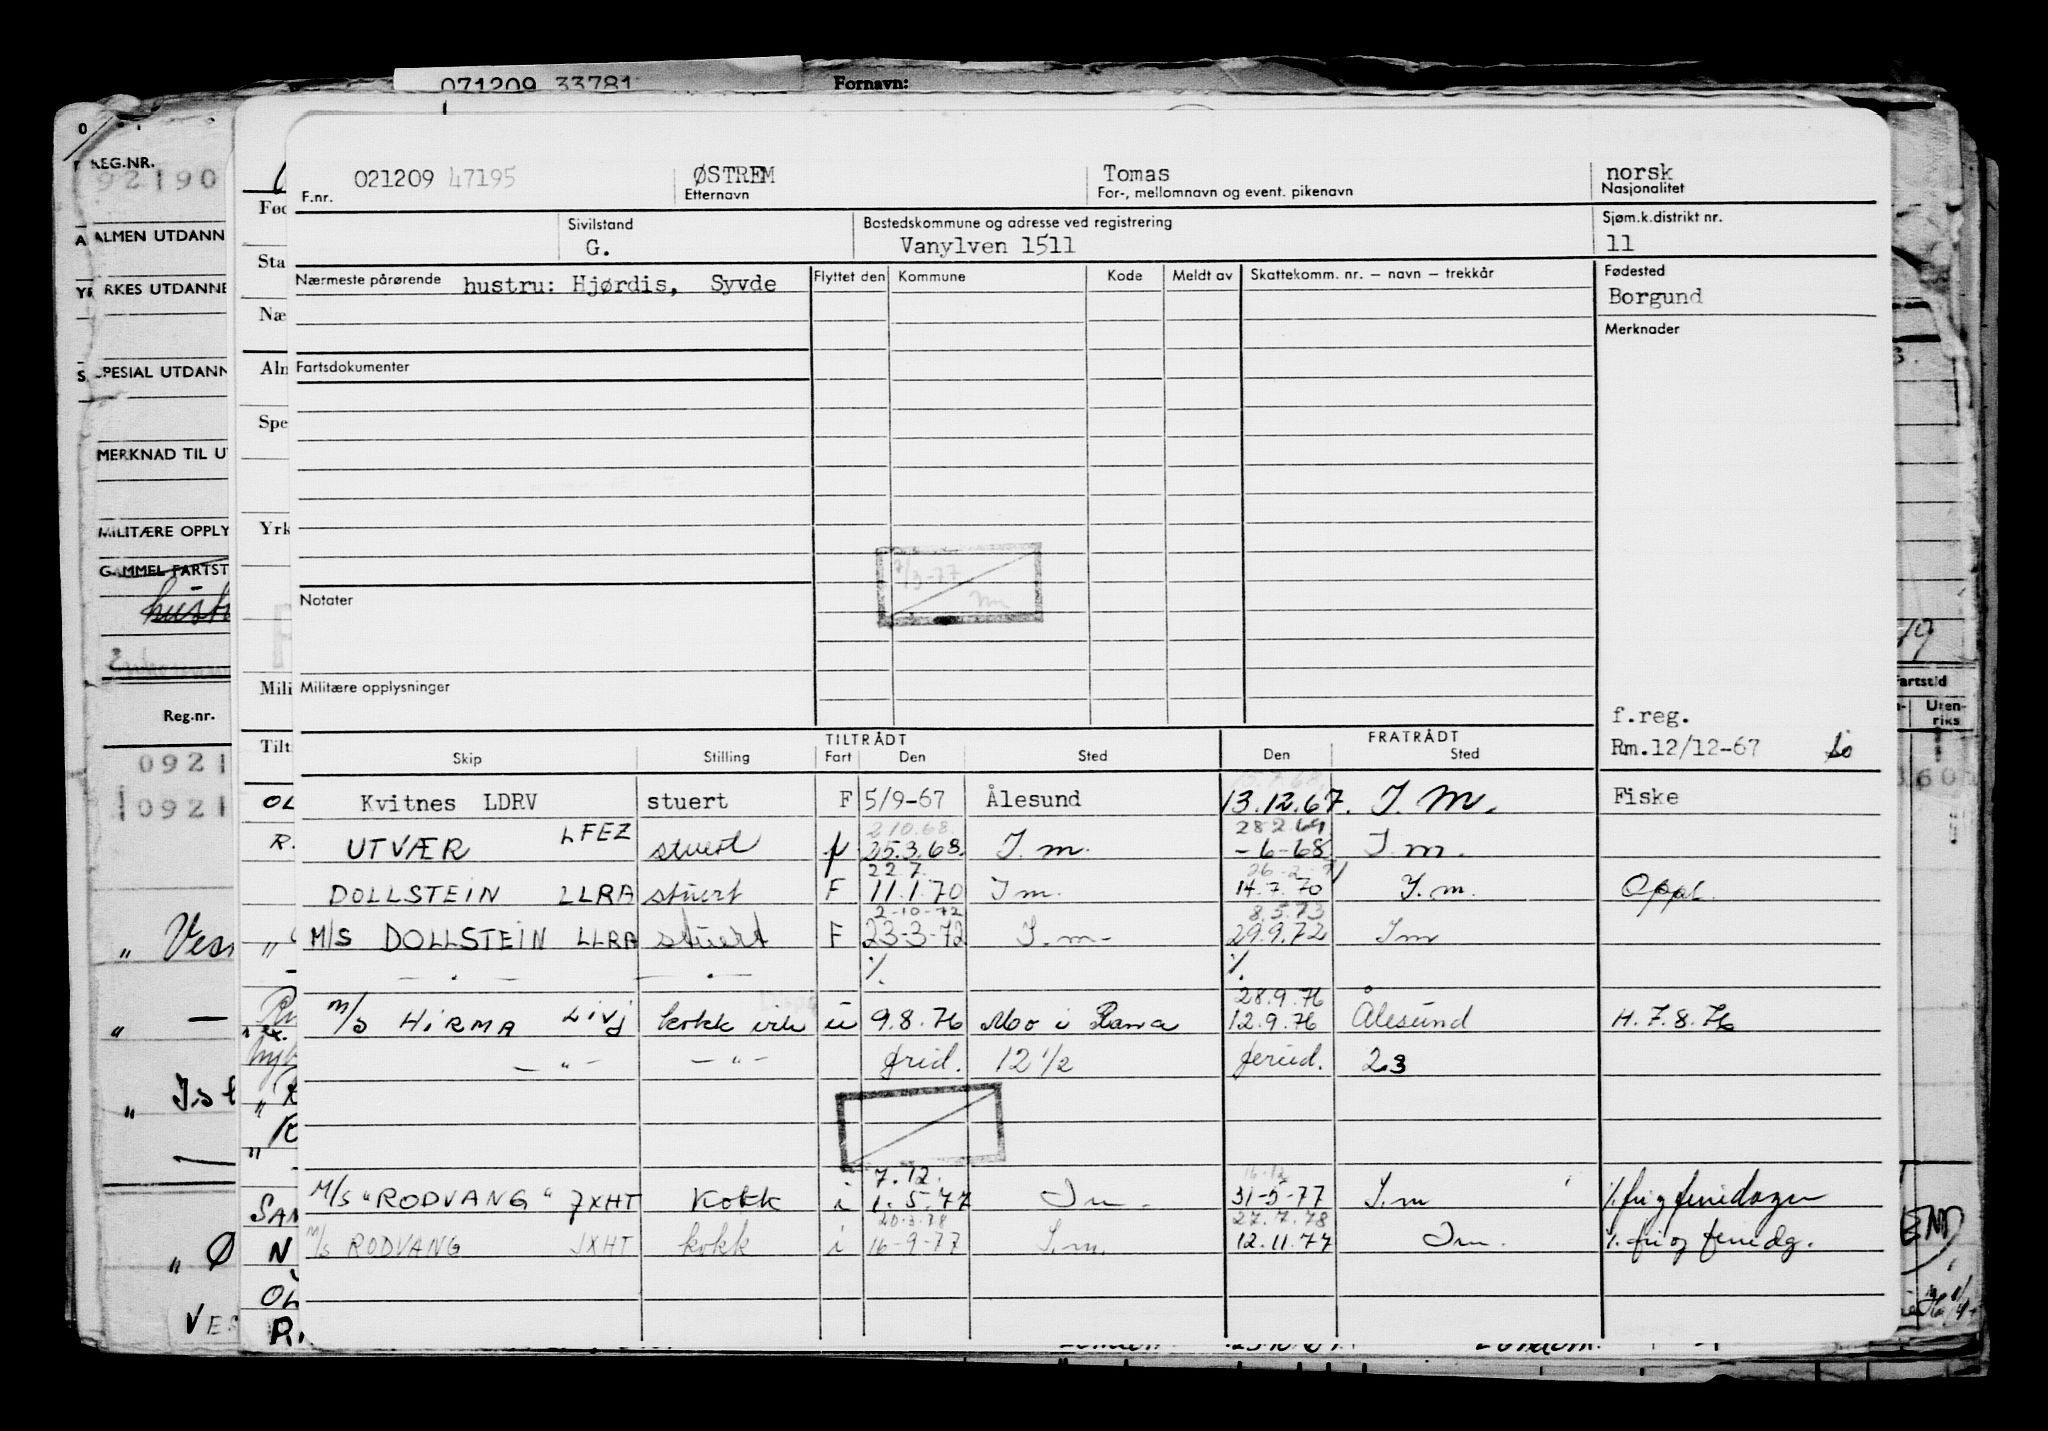 071209 33781 Fornavn:
REG.NR.
92190
ALMEN UTDANN
YRKES UTDANNE
SPESIAL UTDANN
MERKNAD TIL U
MILITÆRE OPPLY
GAMMEL FARTST
Reg.nr.
0921
0921
Fød
Sta
Næ
Aln
Spe
Yrk
Mili
Tilt
021209 47195 ØSTREM Tomas norsk
F.nr. Etternavn For-, mellomnavn og event. pikenavn Nasjonalitet
Sivilstand Bostedskommune og adresse ved registrering Sjøm.k.distrikt nr.
G. Vanylven 1511 11
Nærmeste pårørende hustru: Hjørdis, Syvde Flyttet den Kommune Kode Meldt av Skattekomm. nr. – navn – trekkår Fødested
Borgund
Merknader
Fartsdokumenter
7/3-77
Notater
Militære opplysninger
f.reg.
Rm.12/12-67
TILTRÅDT FRATRÅDT
Skip Stilling Fart Den Sted Den Sted
Kvitnes LDRV stuert F 5/9-67 Ålesund 13.12.67. I.m. Fiske
2.10.68. 28.2.69
UTVÆR LFEZ stuert f 25.3.68. I.m. -6-68 I.m.
22.7. 26-2-71
DOLLSTEIN LLRA stuert F 11.1.70 I m. 14.7.70 I.m. Oppl.
2-10-72 8.5.73
M/S DOLLSTEIN LLRA stuert F 23-3-72 I.m- 29.9.72 Im
— . — — . — ./. ./.
28.9.76
M/S HIRMA LIVJ kokk u 9.8.76 Mo i Rana 12.9.76 Ålesund H.7.8.76
— " — — " — frid. 12 1/2 feried. 23
7.12. 16-12
M/S "RODVANG" JXHT kokk i 1.5.77 Im. 31-5-77 I.m ./. fri og feriedager
20.3.78 27.7.78
M/S RODVANG JXHT kokk i 16-9-77 I.m. 12.11.77 Im. ./. fri og feriedg.
Fartstid
Uten-
riks